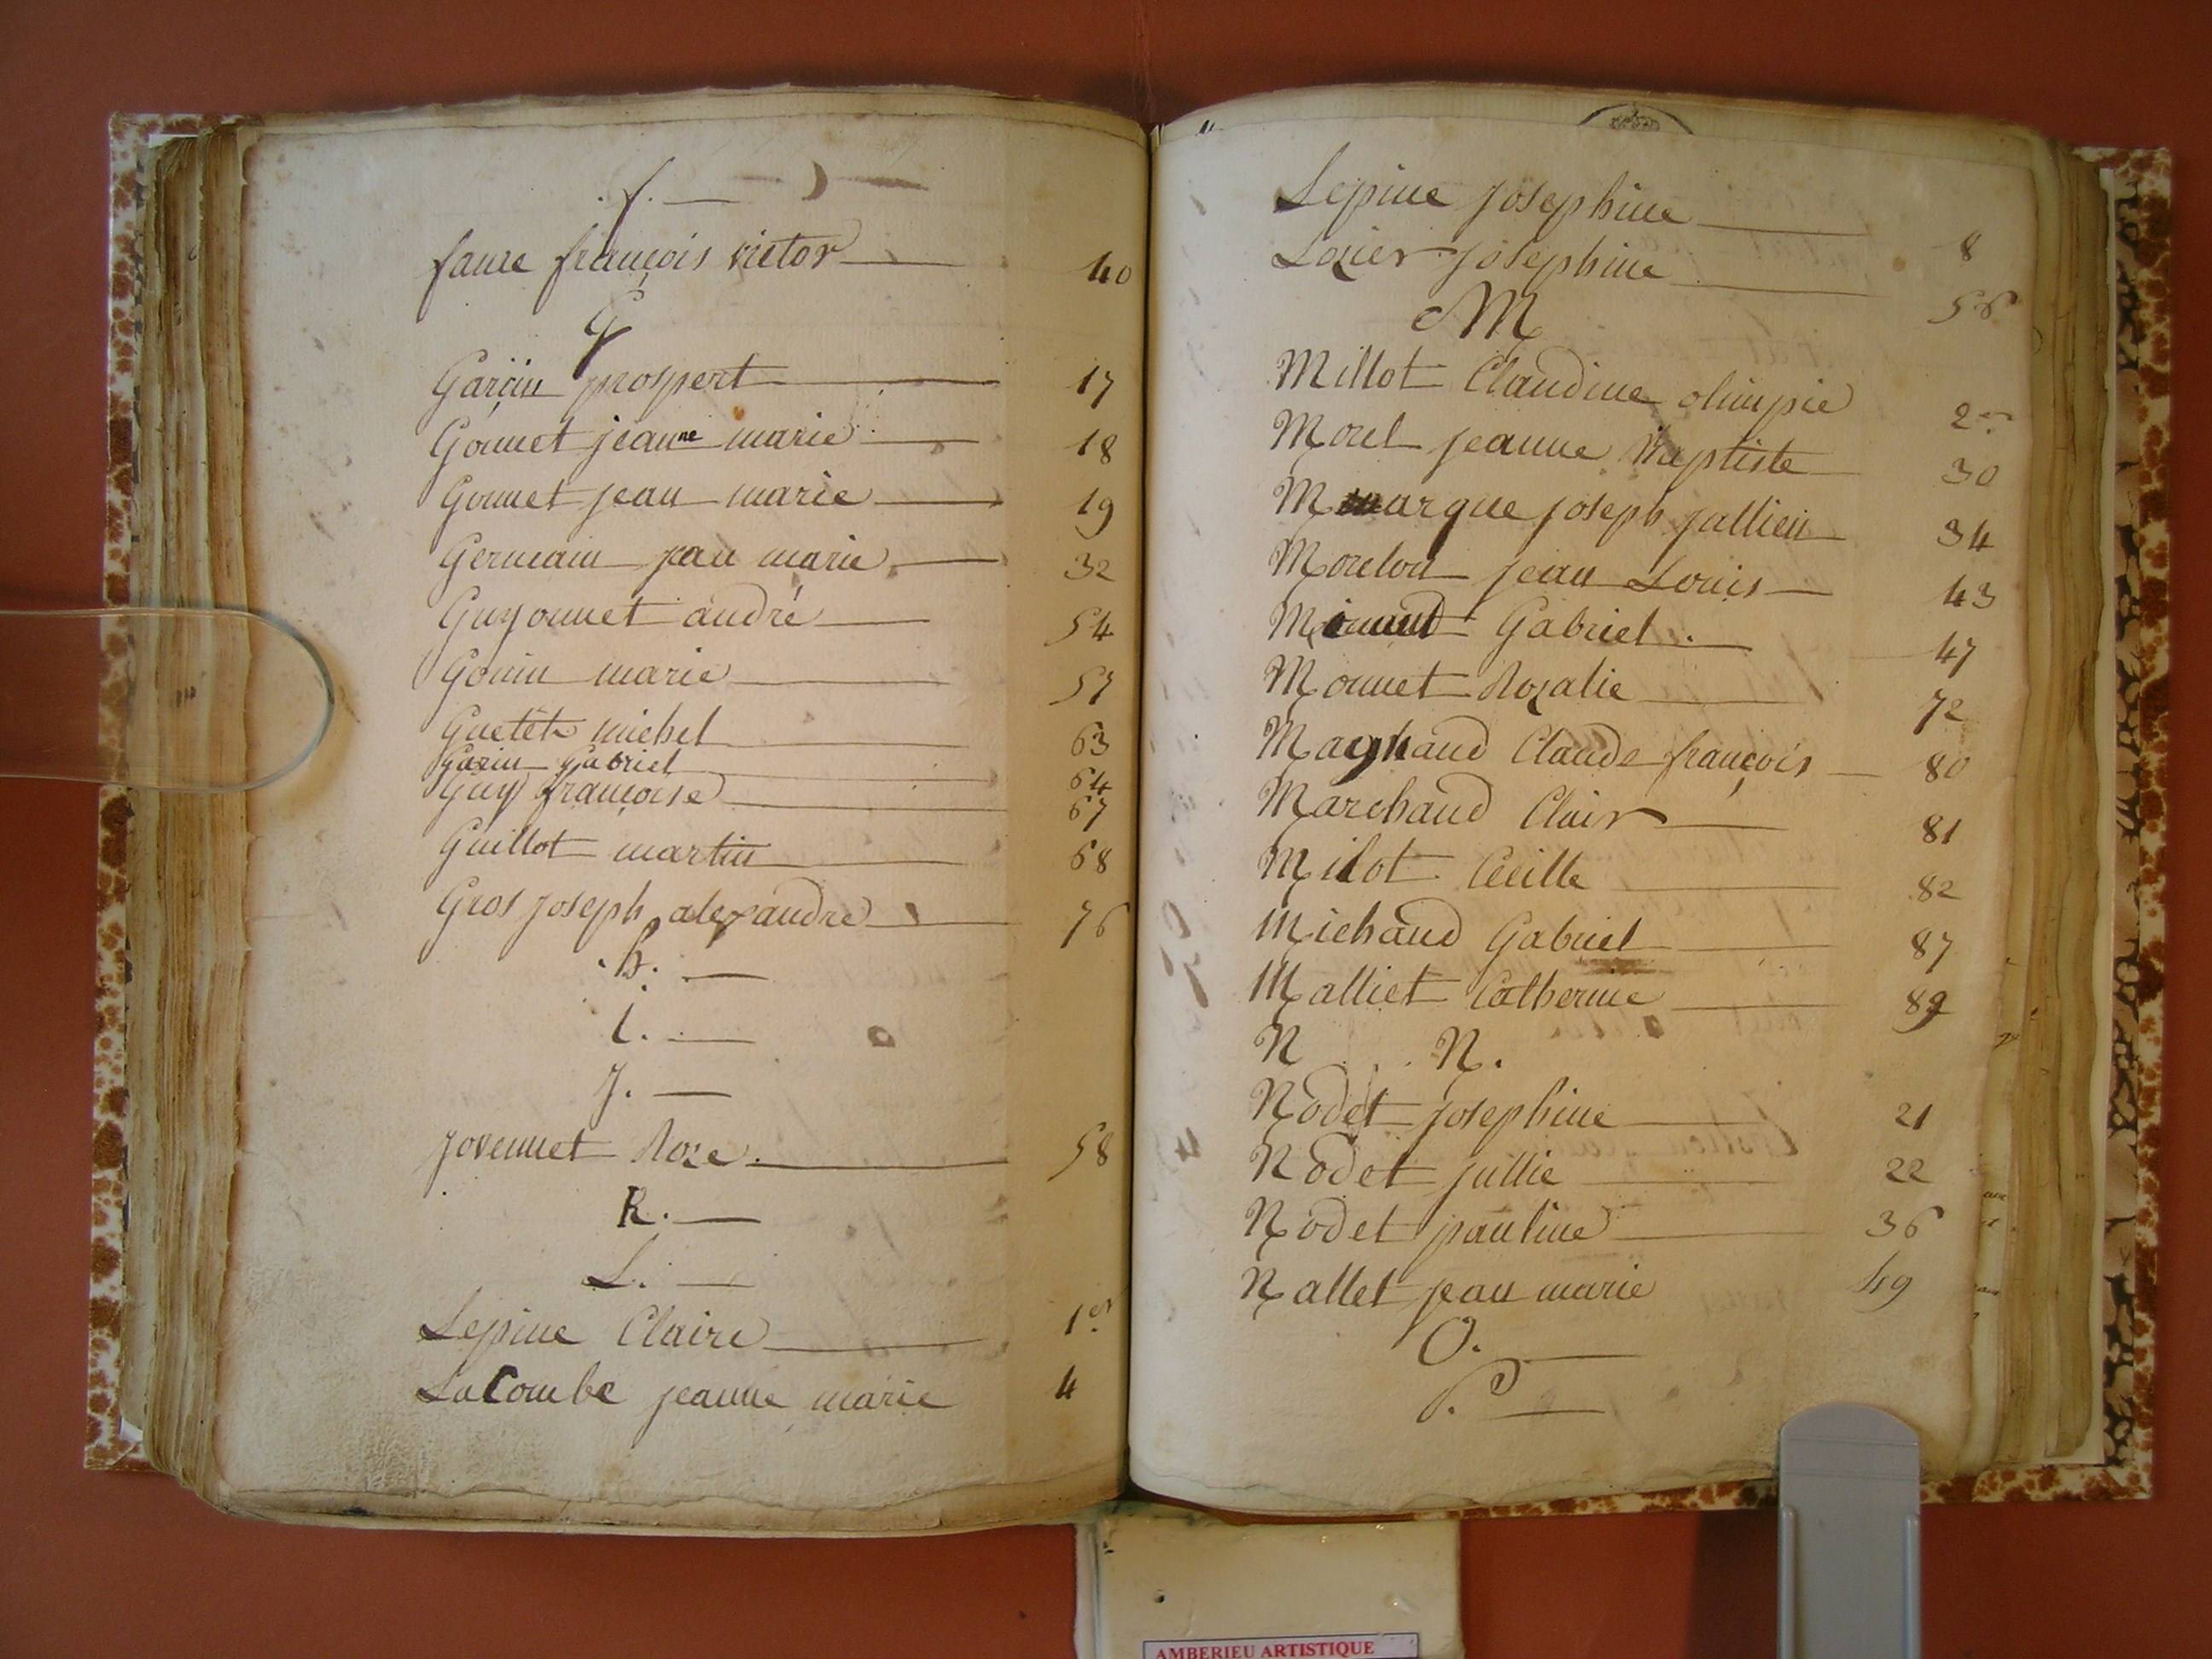 f.
faure françois victor 40
G
Garçin prospert 17
Gonnet jeanne marie 18
Gonnet jean marie 19
Germain jean marie 32
Guyonnet andré 54
Gonin marie 57
Guetét michel 63
Garin Gabriel 64
Guy françoise 67
Guillot martin 68
Gros joseph alexandre 76
h.
i.
j.
jovennet Roze 58
K.
L.
Lepine Claire 1er
LaCombe jeanne marie 4
Lepine Josephine 8
Lozier Josephine 56
M
Millot Claudine olimpie 2
Morel jeanne Baptiste 30
Marque joseph jullien 34
Morelon jean Louis 43
Gabriel 47
Monnet Rozalie 72
Claude françois 80
Marchand Clair 81
Milot Cecille 82
Michaud Gabriel 87
Malliet Catherine 89
N N.
Nodet josephine 21
Nodet jullie 22
Nodet pauline 36
Nallet jean marie 49
O.
P.
AMBERIEU ARTISTIQUE